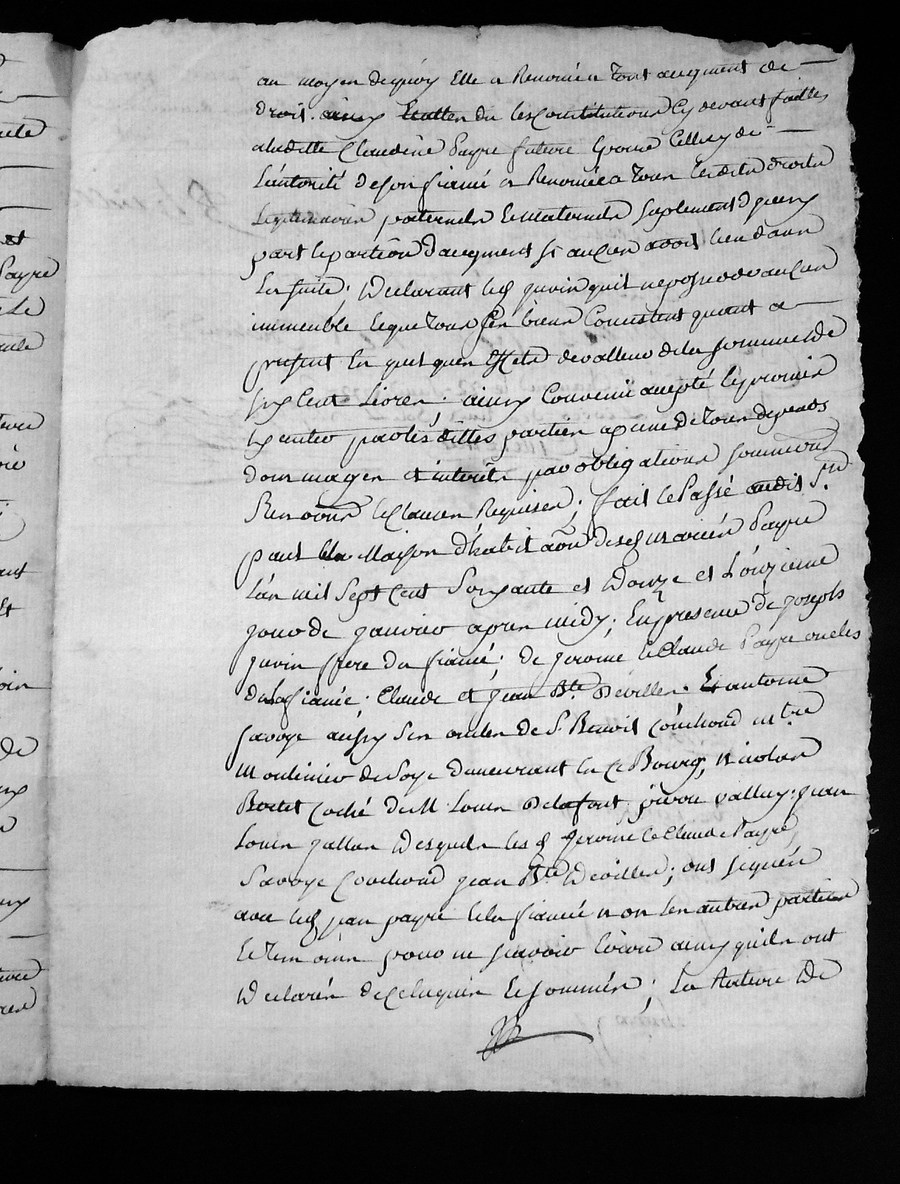 au moyen dequoy Elle a Renoncé a tout augment de
droit. ainsy Enatten du les Constitutions Cy devant faittes
aladitte Claudine Payre future Epouse Celluy de
L'autorité de son fiancé a Renoncé a tous lesdits droits
Legitimaires paternels & maternels suplement d'yceux
part & portion d'augment si aucun avoit lieu dans
La suite; Declarant led juvin quil ne possede aucun
immeuble & que tous ses biens Consistent quant a
present En quelques Effets de valleur de la somme de
six Cent Livres. ainsy Convenu accepté & promis
Executer par lesdittes parties a peine de tous depends
dommages et interets par obligations soumissions
Renon & Clauses Requises; fait & Passé audit St
paul Maison d'habitaon desd mariés Payre
L'an mil sept cent soixante et Douze et L'onzieme
jour de janvier apres midy; En presence de joseph
juvin frere du fiancé; de jerome & Claude Payre oncles
de la fiancée; Claude et jean Bte Deville. Et antoine
savoye aussy ses oncles de Sr Benoit Couchoud mtre
Moulinier de Soye demeurant En Ce Bourg, nicolas
Bertet Coché de M Louis Delafont Palluy jean
Louis jallon Desquels lesd jerome & Claude Payre,
Savoye Couchoud jean Bte Deville; ont signés
avec led jean payre & la fiancée non les autres parties
& Temoins pour ne scavoir Ecrire ainsy quils ont
Declarés de Ce Enquis & sommés; La Nature De